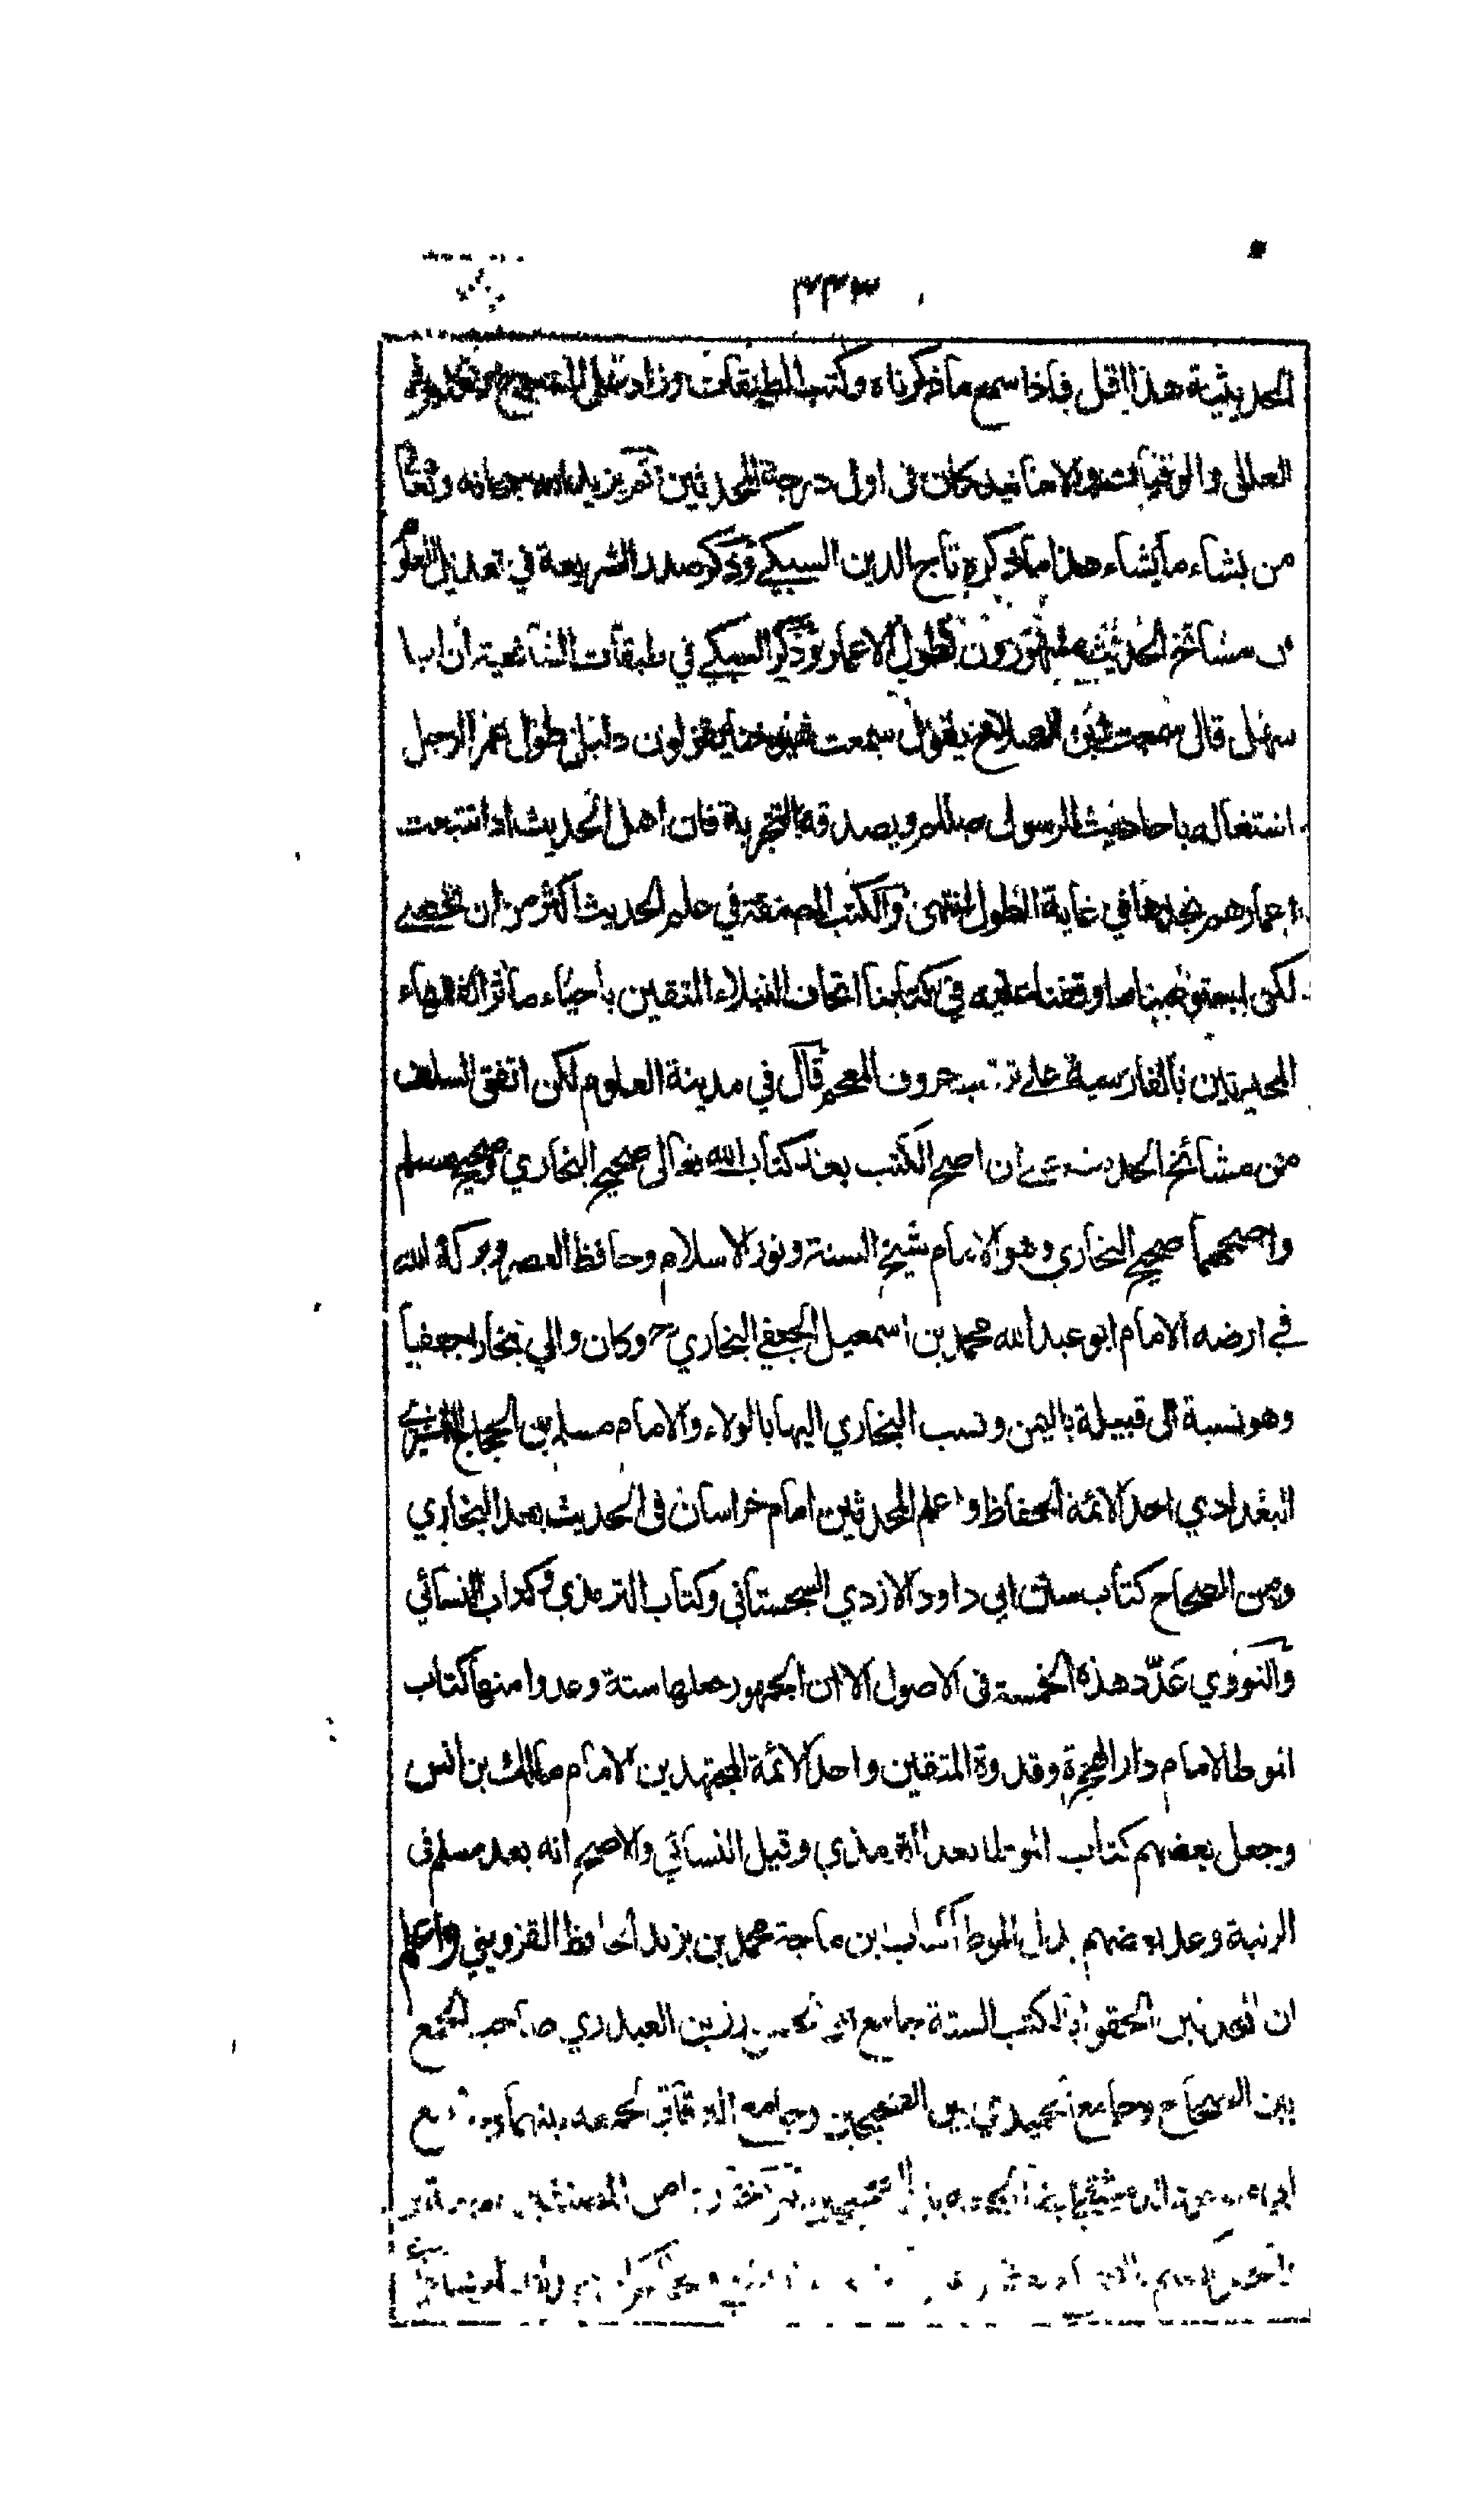 ٣٣٣
الحديثية هذا اقل فاذا سمع ما ذكرناه وكتب الطبقات وزاد على
العلل والوفيات والاسانيد كان في اول درجة المحدثين ثم يزيد الله سبحانه وتعالى
من يشاء ما يشاء هذا ما ذكره تاج الدين السبكي وذكر صدر الشريعة في تعديل العلوم
ان مشائخ الحديث مشهورون بطول الاعمار وذكر السبكي في طبقات الشافعية ان ابا
سهل قال سمعت ابن الصلاح يقول سمعت شيوخنا يقولون دليل طول عمر الرجل
اشتغاله باحاديث الرسول صللم ويصدقه التجربة فان اهل الحديث اذا تتبعت
اعمارهم تجدها في غاية الطول انتهى والكتب المصنفة في علم الحديث اكثر من ان تحصى
لكن استوعبنا ما وقفنا عليه في كتابنا اتحاف النبلاء المتقين باحياء مآثر الفقهاء
المحدثين بالفارسية على ترتيب حروف المعجم قال في مدينة العلوم لكن اتفق السلف
من مشائخ الحديث على ان اصح الكتب بعد كتاب الله تعالى صحيح البخاري وصحيح مسلم
واصحهما صحيح البخاري وهو الامام شيخ السنة ونور الاسلام وحافظ العصر وبركة الله
في ارضه الامام ابو عبد الله محمد بن اسمعيل الجعفي البخاري رح وكان والي بخارا جعفيا
وهو نسبة الى قبيلة باليمن ونسب البخاري اليها بالولاء والامام مسلم بن الحجاج القشيري
البغدادي احد الائمة الحفاظ واعلم المحدثين امام خراسان في الحديث بعد البخاري
ومن الصحاح كتاب سنن ابي داود الازدي السجستاني وكتاب الترمذي وكتاب النسائي
والنووي عَدَّد هذه الخمسة في الاصول الا ان الجمهور جعلها ستة وعدوا منها كتاب
الموطا لامام دار الهجرة وقدوة المتقين واحد الائمة المجتهدين الامام مالك بن انس
وجعل بعضهم كتاب الموطا بعد الترمذي وقيل النسائي والاصح انه بعد مسلم في
الرتبة وعد بعضهم بدل الموطا كتاب ابن ماجة محمد بن يزيد الحافظ القزويني واعلم
ان المحدثين الحقوا بالكتب الستة جامع ابي الحسن رزين العبدري صاحب الجمع
بين الصحاح وجامع الحميدي بين الصحيحين وجامع البرقاني لجمعه بينهما